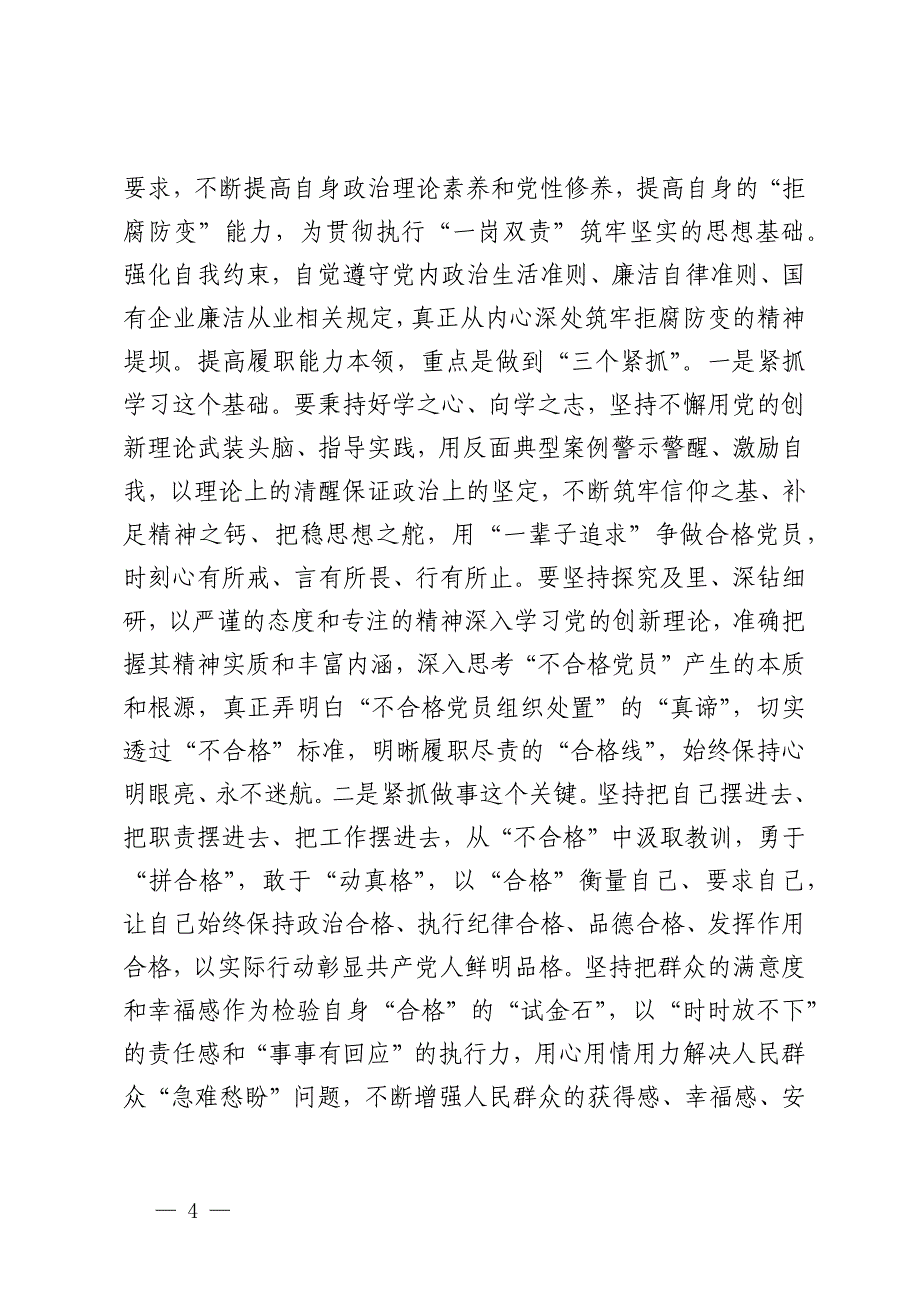 要求，不断提高自身政治理论素养和党性修养，提高自身的“拒
腐防变”能力，为贯彻执行“一岗双责”筑牢坚实的思想基础。
强化自我约束，自觉遵守党内政治生活准则、廉洁自律准则、国
有企业廉洁从业相关规定，真正从内心深处筑牢拒腐防变的精神
堤坝。提高履职能力本领，重点是做到“三个紧抓”。一是紧抓
学习这个基础。要秉持好学之心、向学之志，坚持不懈用党的创
新理论武装头脑、指导实践，用反面典型案例警示警醒、激励自
我，以理论上的清醒保证政治上的坚定，不断筑牢信仰之基、补
足精神之钙、把稳思想之舵，用“一辈子追求”争做合格党员，
时刻心有所戒、言有所畏、行有所止。要坚持探究及里、深钻细
研，以严谨的态度和专注的精神深入学习党的创新理论，准确把
握其精神实质和丰富内涵，深入思考“不合格党员”产生的本质
和根源，真正弄明白“不合格党员组织处置”的“真谛”，切实
透过“不合格”标准，明晰履职尽责的“合格线”，始终保持心
明眼亮、永不迷航。二是紧抓做事这个关键。坚持把自己摆进去、
把职责摆进去、把工作摆进去，从“不合格”中汲取教训，勇于
“拼合格”，敢于“动真格”，以“合格”衡量自己、要求自己，
让自己始终保持政治合格、执行纪律合格、品德合格、发挥作用
合格，以实际行动彰显共产党人鲜明品格。坚持把群众的满意度
和幸福感作为检验自身“合格”的“试金石”，以“时时放不下”
的责任感和“事事有回应”的执行力，用心用情用力解决人民群
众“急难愁盼”问题，不断增强人民群众的获得感、幸福感、安
— 4 —